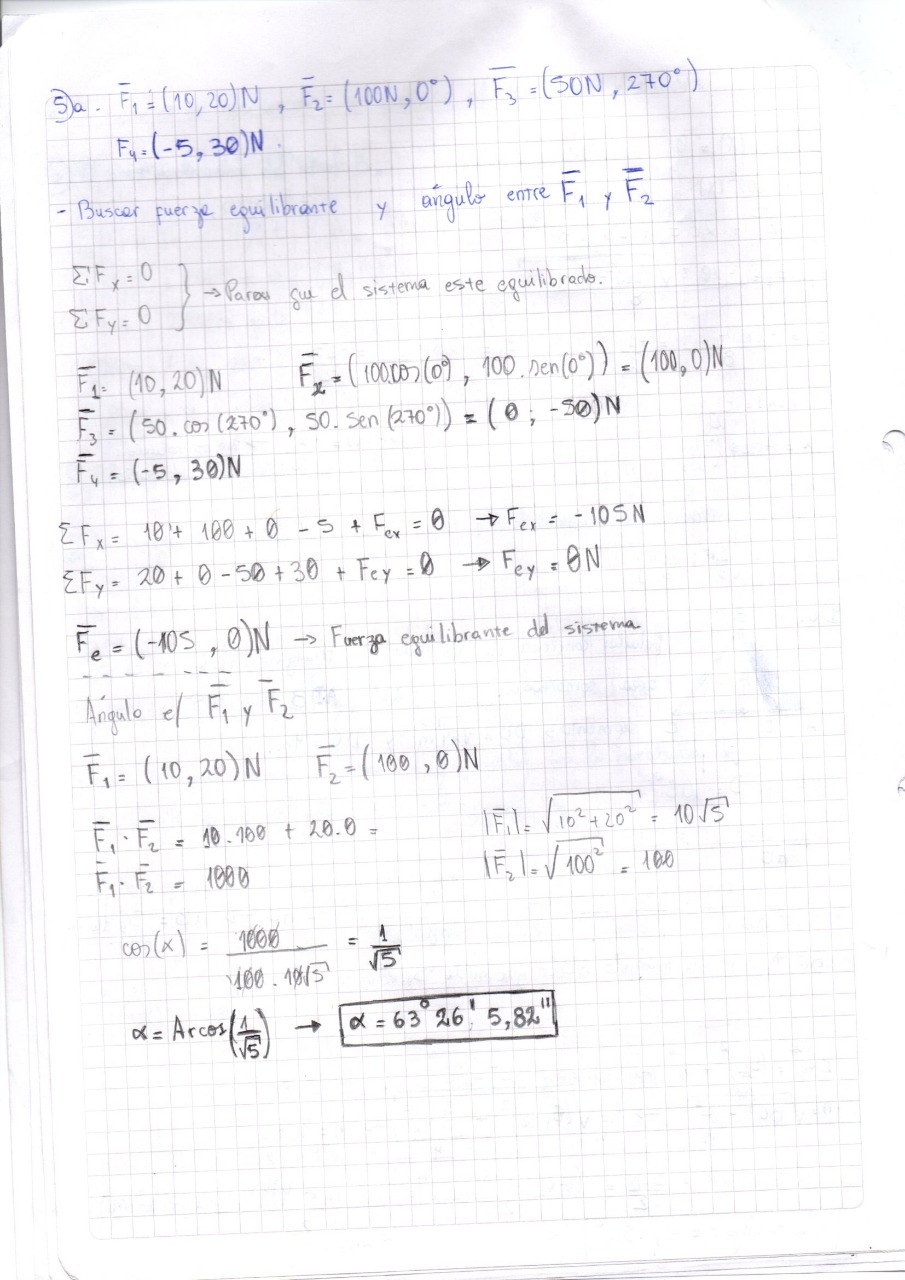 5)a. F̅₁ = (10, 20)N , F̅₂ = (100N, 0°) , F̅₃ = (50N, 270°)
F₄ = (-5, 30)N.
- Buscar fuerza equilibrante y ángulo entre F̅₁ y F̅₂
ΣFx = 0
ΣFy = 0 } → Para que el sistema este equilibrado.
F̅₁ = (10, 20)N F̅₂ = (100.cos(0°), 100.sen(0°)) = (100, 0)N
F̅₃ = (50.cos(270°), 50.sen(270°)) = (0; -50)N
F̅₄ = (-5, 30)N
ΣFx = 10 + 100 + 0 - 5 + Fex = 0 → Fex = -105N
ΣFy = 20 + 0 - 50 + 30 + Fey = 0 → Fey = 0N
F̅e = (-105, 0)N → Fuerza equilibrante del sistema
Ángulo e/ F̅₁ y F̅₂
F̅₁ = (10, 20)N F̅₂ = (100, 0)N
F̅₁ · F̅₂ = 10.100 + 20.0 = |F̅₁| = √(10² + 20²) = 10√5
F̅₁ · F̅₂ = 1000 |F̅₂| = √(100²) = 100
cos(α) = 1000 / (100 . 10√5) = 1/√5
α = Arcos(1/√5) → α = 63° 26' 5,82"